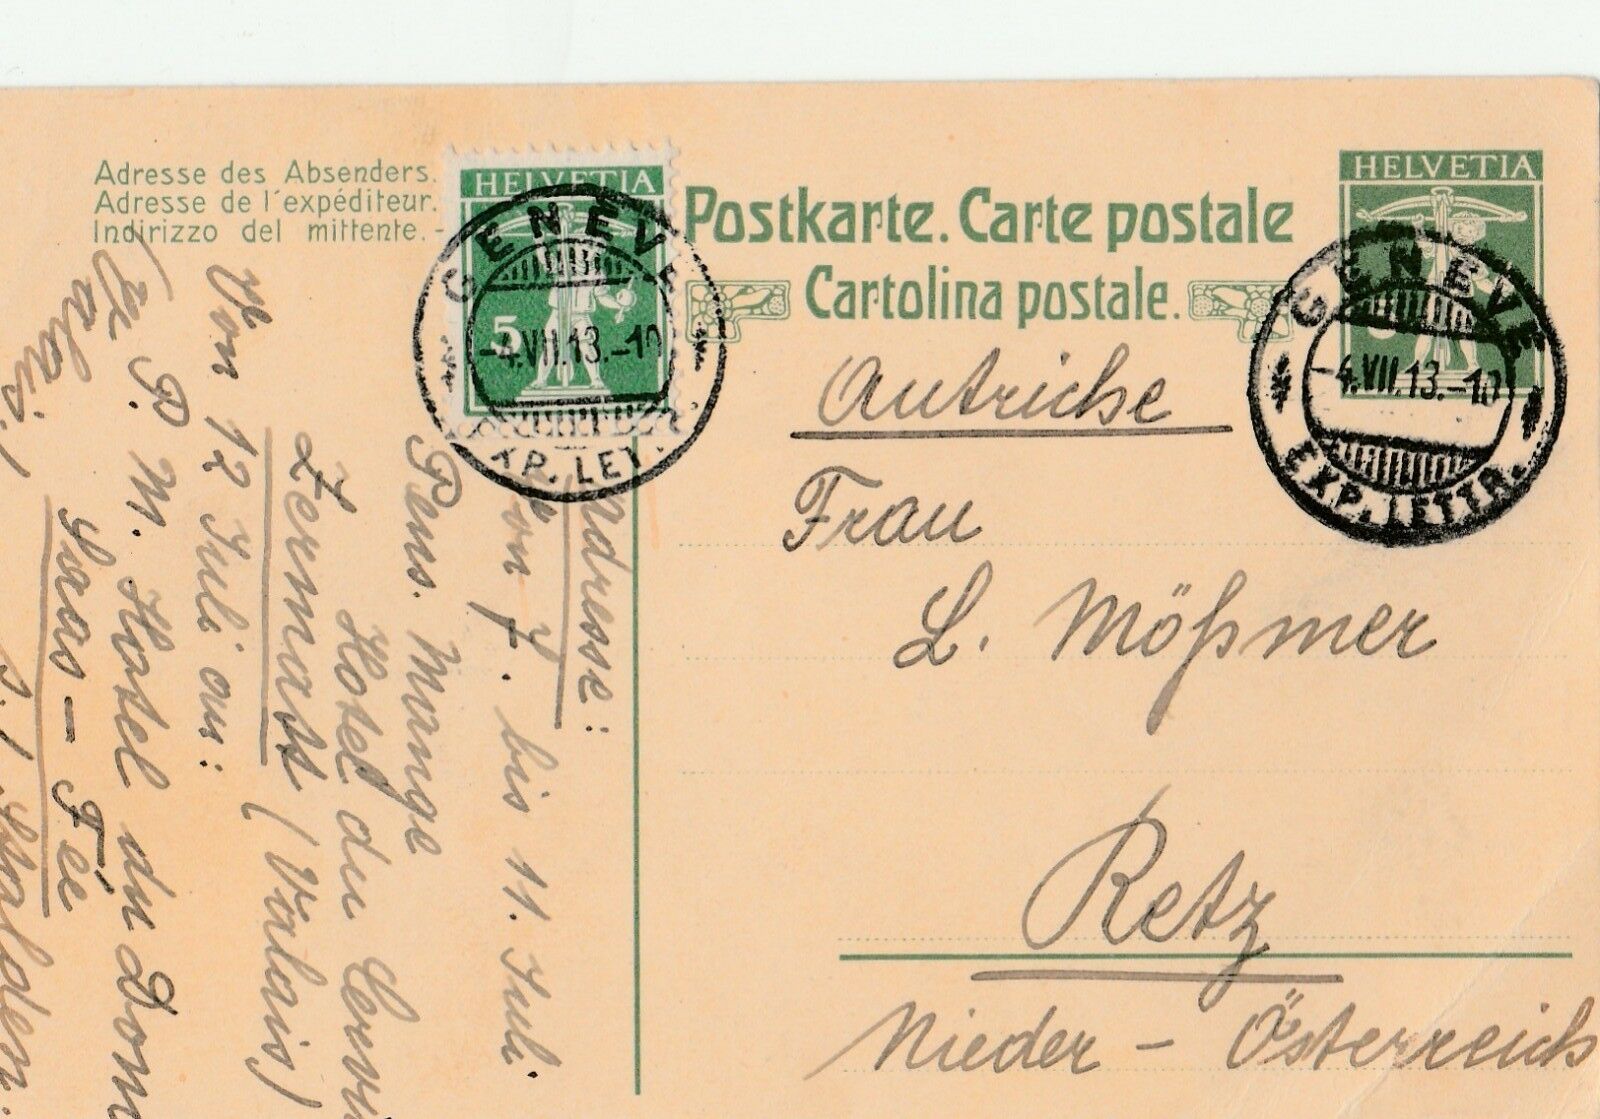 Adresse des Absenders.
Adresse de l'expéditeur.
Indirizzo del mittente.-
HELVETIA
5
GENÈVE
-4.VII.13.-10
EXP. LET
Postkarte. Carte postale
Cartolina postale.
HELVETIA
GENÈVE
-4.VII.13.-10
EXP. LETTR.
Autriche
Frau
L. Mößmer
Retz
Nieder-Österreich
Adresse:
Von 7. bis 11. Juli
Pens. Mange
Hotel du Cervin
Zermatt (Valais)
Von 12 Juli an:
P. M. Hotel du Dom
Saas-Fée
Stalden